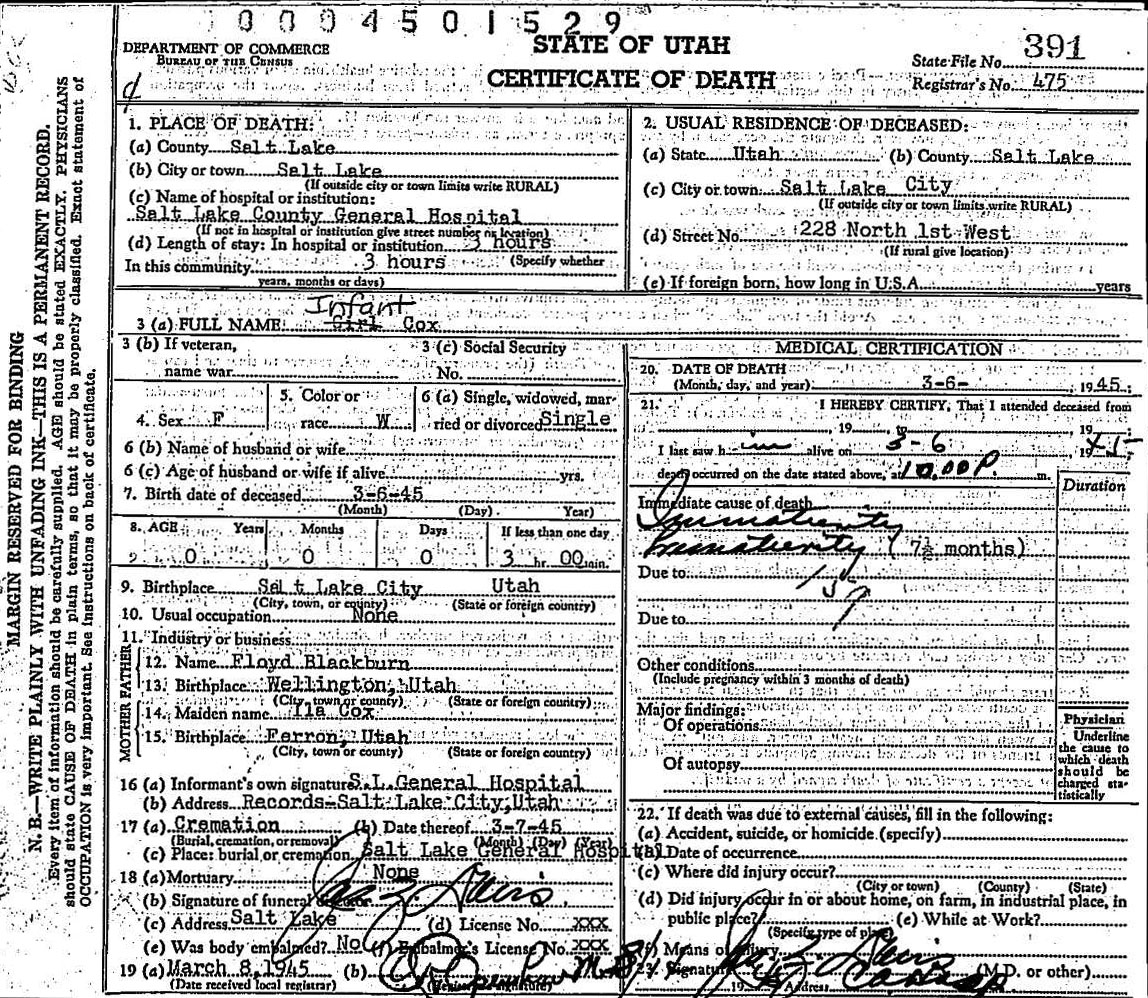 0004501529
DEPARTMENT OF COMMERCE
BUREAU OF THE CENSUS
STATE OF UTAH
CERTIFICATE OF DEATH
State File No. 391
Registrar's No. 475
MARGIN RESERVED FOR BINDING
N. B.—WRITE PLAINLY WITH UNFADING INK—THIS IS A PERMANENT RECORD.
Every item of information should be carefully supplied. AGE should be stated EXACTLY. PHYSICIANS
should state CAUSE OF DEATH in plain terms, so that it may be properly classified. Exact statement of
OCCUPATION is very important. See instructions on back of certificate.
1. PLACE OF DEATH:
(a) County Salt Lake
(b) City or town Salt Lake
(If outside city or town limits write RURAL)
(c) Name of hospital or institution:
Salt Lake County General Hospital
(If not in hospital or institution give street number or location)
(d) Length of stay: In hospital or institution 3 hours
In this community 3 hours (Specify whether
years, months or days)
2. USUAL RESIDENCE OF DECEASED:
(a) State Utah (b) County Salt Lake
(c) City or town Salt Lake City
(If outside city or town limits write RURAL)
(d) Street No. 228 North 1st West
(If rural give location)
(e) If foreign born, how long in U.S.A. years
Infant
3 (a) FULL NAME Girl Cox
3 (b) If veteran, 3 (c) Social Security
name war No.
4. Sex F 5. Color or race W 6 (a) Single, widowed, married or divorced Single
6 (b) Name of husband or wife
6 (c) Age of husband or wife if alive yrs.
7. Birth date of deceased 3-6-45
(Month) (Day) Year)
8. AGE Years Months Days If less than one day
0 0 0 3 hr. 00 min.
9. Birthplace Salt Lake City Utah
(City, town, or county) (State or foreign country)
10. Usual occupation None
11. Industry or business
FATHER
12. Name Floyd Blackburn
13. Birthplace Wellington, Utah
(City, town or county) (State or foreign country)
MOTHER
14. Maiden name Ila Cox
15. Birthplace Ferron, Utah
(City, town or county) (State or foreign country)
16 (a) Informant's own signature S.L. General Hospital
(b) Address Records-Salt Lake City, Utah
17 (a) Cremation (b) Date thereof 3-7-45
(Burial, cremation, or removal) (Month) (Day) (Year)
(c) Place: burial or cremation Salt Lake General Hospital
18 (a) Mortuary None
(b) Signature of funeral
(c) Address Salt Lake (d) License No. xxx
(e) Was body embalmed? No (f) Embalmer's License No. xxx
19 (a) March 8, 1945 (b)
(Date received local registrar) (Registrar's signature)
MEDICAL CERTIFICATION
20. DATE OF DEATH
(Month, day, and year) 3-6- 1945
21. I HEREBY CERTIFY, That I attended deceased from
, 19 to , 19
I last saw h im alive on 3-6 19 45
death occurred on the date stated above, at 10.00 P. m.
Duration
Immediate cause of death
Immaturity
Prematurity (7½ months)
Due to 159
Due to
Other conditions
(Include pregnancy within 3 months of death)
Major findings:
Of operations
Of autopsy
Physician
Underline
the cause to
which death
should be
charged sta-
tistically
22. If death was due to external causes, fill in the following:
(a) Accident, suicide, or homicide (specify)
(b) Date of occurrence
(c) Where did injury occur?
(City or town) (County) (State)
(d) Did injury occur in or about home, on farm, in industrial place, in
public place? (e) While at Work?
(Specify type of place)
(f) Means of injury
23. Signature (M.D. or other)
19 Address